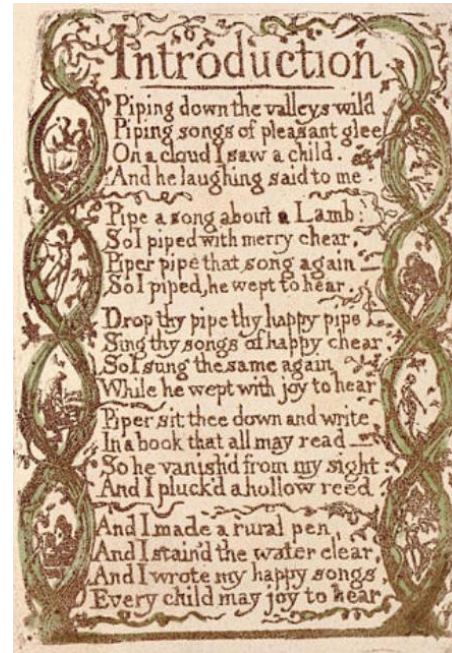 Introduction
Piping down the valleys wild
Piping songs of pleasant glee
On a cloud I saw a child.
And he laughing said to me.
Pipe a song about a Lamb:
So I piped with merry chear,
Piper pipe that song again—
So I piped, he wept to hear.
Drop thy pipe thy happy pipe
Sing thy songs of happy chear
So I sung the same again
While he wept with joy to hear
Piper sit thee down and write
In a book that all may read—
So he vanish'd from my sight.
And I pluck'd a hollow reed.
And I made a rural pen,
And I stain'd the water clear,
And I wrote my happy songs
Every child may joy to hear